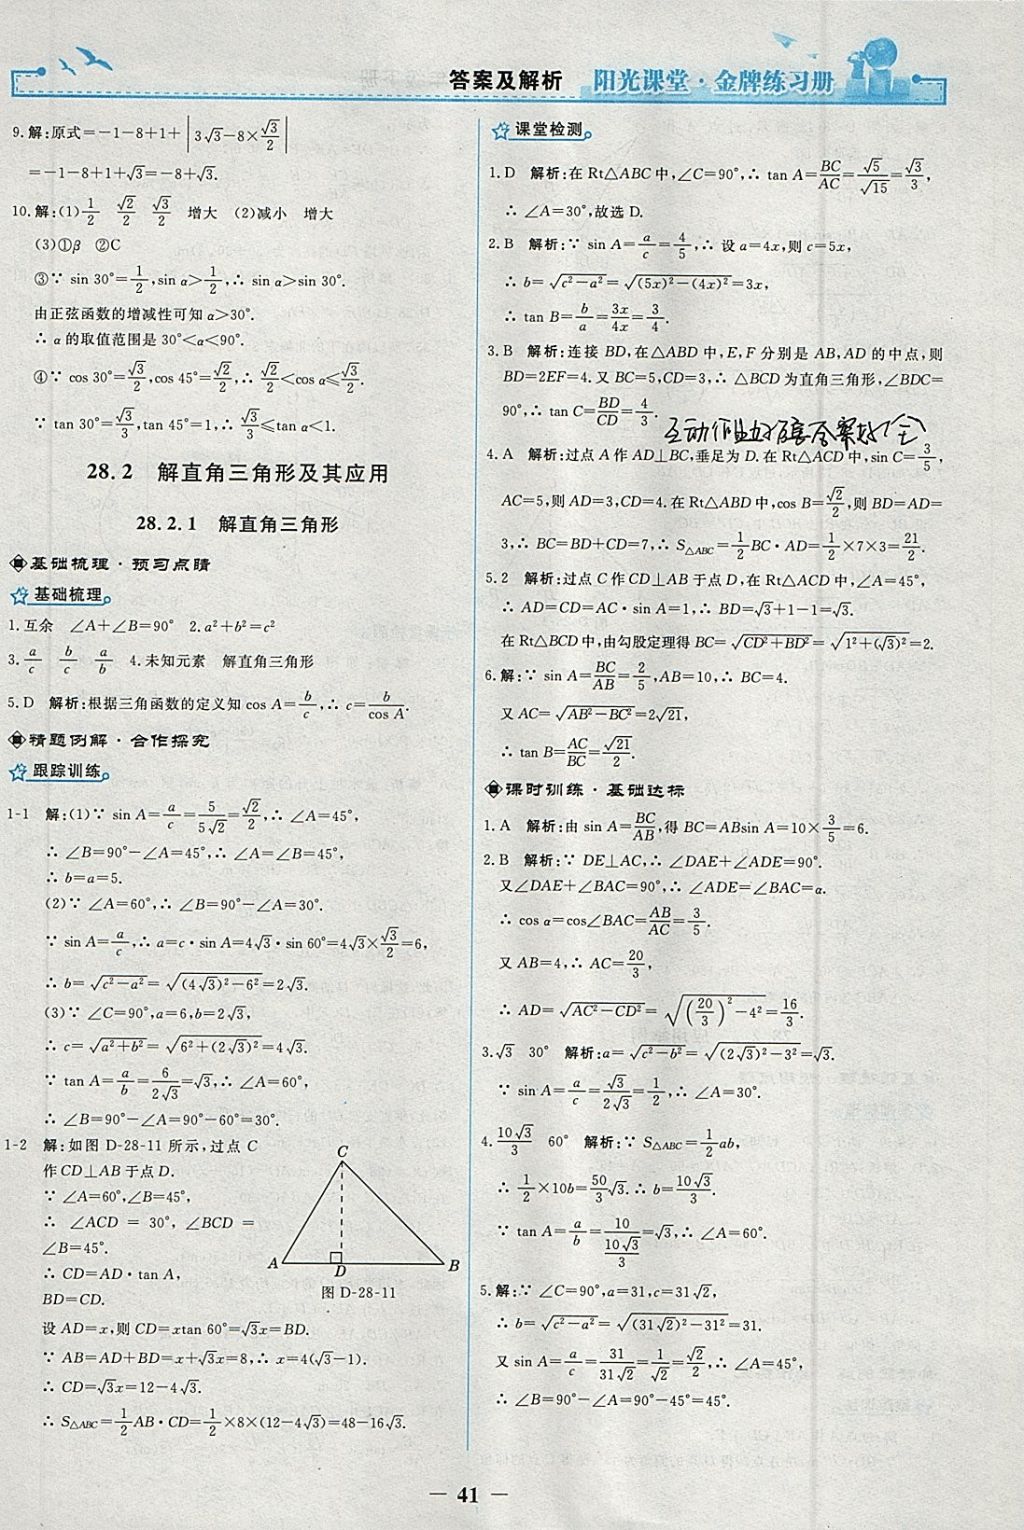 答案及解析
阳光课堂·金牌练习册
9.解:原式=-1-8+1+|3√3-8×√3/2|
=-1-8+1+√3=-8+√3.
10.解:(1)1/2 √2/2 √3/2 增大 (2)减小 增大
(3)①β ②C
③∵ sin 30°=1/2,sin α>1/2,∴ sin α>sin 30°.
由正弦函数的增减性可知α>30°.
∴ α的取值范围是30°<α<90°.
④∵ cos 30°=√3/2,cos 45°=√2/2,∴ √2/2<cos α≤√3/2.
∵ tan 30°=√3/3,tan 45°=1,∴ √3/3≤tan α<1.
28.2 解直角三角形及其应用
28.2.1 解直角三角形
基础梳理·预习点睛
基础梳理
1.互余 ∠A+∠B=90° 2.a²+b²=c²
3.a/c b/c a/b 4.未知元素 解直角三角形
5.D 解析:根据三角函数的定义知cos A=b/c,∴ c=b/cos A.
精题例解·合作探究
跟踪训练
1-1 解:(1)∵ sin A=a/c=5/5√2=√2/2,∴ ∠A=45°,
∴ ∠B=90°-∠A=45°,∴ ∠A=∠B=45°,
∴ b=a=5.
(2)∵ ∠A=60°,∴ ∠B=90°-∠A=30°.
∵ sin A=a/c,∴ a=c·sin A=4√3·sin 60°=4√3×√3/2=6,
∴ b=√(c²-a²)=√((4√3)²-6²)=2√3.
(3)∵ ∠C=90°,a=6,b=2√3,
∴ c=√(a²+b²)=√(6²+(2√3)²)=4√3.
∵ tan A=a/b=6/2√3=√3,∴ ∠A=60°,
∴ ∠B=90°-∠A=90°-60°=30°.
1-2 解:如图D-28-11所示,过点C
作CD⊥AB于点D.
∵ ∠A=60°,∠B=45°,
∴ ∠ACD = 30°,∠BCD =
∠B=45°.
∴ CD=AD·tan A,
BD=CD.
C
A
D
B
图 D-28-11
设AD=x,则CD=xtan 60°=√3x=BD.
∵ AB=AD+BD=x+√3x=8,∴ x=4(√3-1).
∴ CD=√3x=12-4√3.
∴ S△ABC=1/2AB·CD=1/2×8×(12-4√3)=48-16√3.
课堂检测
1.D 解析:在Rt△ABC中,∠C=90°,∴ tan A=BC/AC=√5/√15=√3/3,
∴ ∠A=30°,故选D.
2.B 解析:∵ sin A=a/c=4/5,∴ 设a=4x,则c=5x,
∴ b=√(c²-a²)=√((5x)²-(4x)²)=3x,
∴ tan B=b/a=3x/4x=3/4.
3.B 解析:连接BD,在△ABD中,E,F分别是AB,AD的中点,则
BD=2EF=4.又BC=5,CD=3,∴ △BCD为直角三角形,∠BDC=
90°,∴ tan C=BD/CD=4/3.
4.A 解析:过点A作AD⊥BC,垂足为D.在Rt△ACD中,sin C=3/5,
AC=5,则AD=3,CD=4.在Rt△ABD中,cos B=√2/2,则BD=AD=
3,∴ BC=BD+CD=7,∴ S△ABC=1/2BC·AD=1/2×7×3=21/2.
5.2 解析:过点C作CD⊥AB于点D,在Rt△ACD中,∠A=45°,
∴ AD=CD=AC·sin A=1,∴ BD=√3+1-1=√3.
在Rt△BCD中,由勾股定理得BC=√(CD²+BD²)=√(1²+(√3)²)=2.
6.解:∵ sin A=BC/AB=2/5,AB=10,∴ BC=4.
又AC=√(AB²-BC²)=2√21,
∴ tan B=AC/BC=√21/2.
课时训练·基础达标
1.A 解析:由sin A=BC/AB,得BC=ABsin A=10×3/5=6.
2.B 解析:∵ DE⊥AC,∴ ∠DAE+∠ADE=90°.
又∠DAE+∠BAC=90°,∴ ∠ADE=∠BAC=α.
∴ cos α=cos∠BAC=AB/AC=3/5.
又AB=4,∴ AC=20/3,
∴ AD=√(AC²-CD²)=√((20/3)²-4²)=16/3.
3.√3 30° 解析:a=√(c²-b²)=√((2√3)²-3²)=√3.
∵ sin A=a/c=√3/2√3=1/2,∴ ∠A=30°.
4.10√3/3 60° 解析:∵ S△ABC=1/2ab,
∴ 1/2×10b=50/3√3.∴ b=10√3/3.
∵ tan A=a/b=10/(10√3/3)=√3,∴ ∠A=60°.
5.解:∵ ∠C=90°,a=31,c=31√2,
∴ b=√(c²-a²)=√((31√2)²-31²)=31.
又sin A=a/c=31/31√2=1/√2=√2/2,∴ ∠A=45°,
∴ ∠B=90°-∠A=90°-45°=45°.
— 41 —